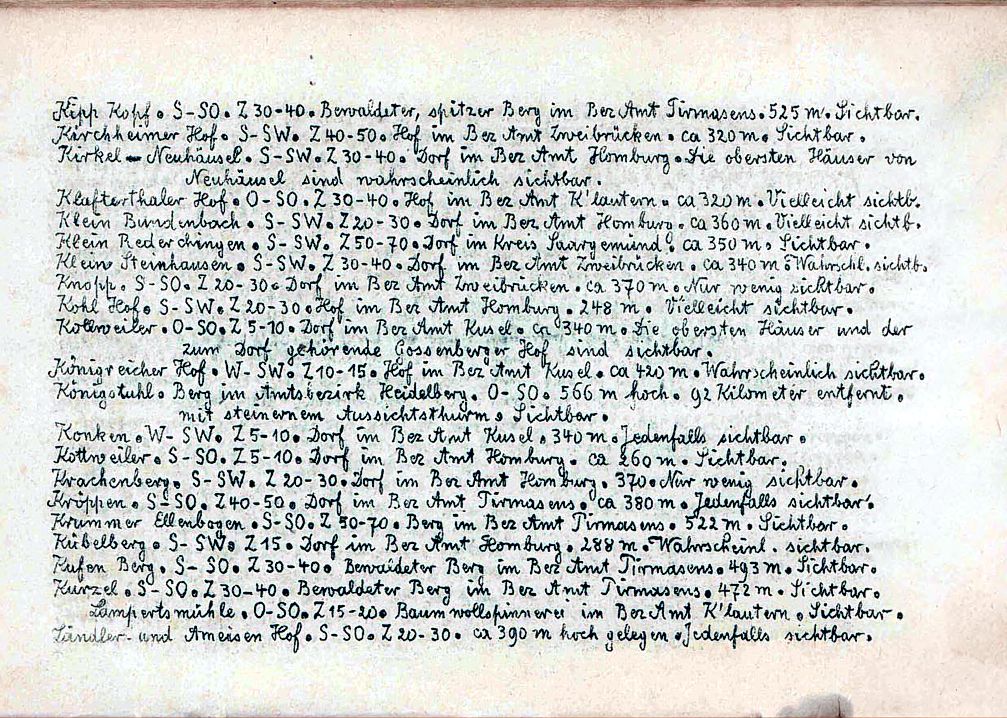 Kipp Kopf. S-SO. Z 30-40. Bewaldeter, spitzer Berg im Bez Amt Pirmasens. 525 m. Sichtbar.
Kirchheimer Hof. S-SW. Z 40-50. Hof im Bez Amt Zweibrücken. ca 320 m. Sichtbar.
Kirkel - Neuhäusel. S-SW. Z 30-40. Dorf im Bez Amt Homburg. Die obersten Häuser von
Neuhäusel sind wahrscheinlich sichtbar.
Klafterthaler Hof. O-SO. Z 30-40. Hof im Bez Amt K'lautern. ca 320 m. Vielleicht sichtb.
Klein Bundenbach. S-SW. Z 20-30. Dorf im Bez Amt Homburg. ca 360 m. Vielleicht sichtb.
Klein Rederchingen. S-SW. Z 50-70. Dorf im Kreis Saargemünd. ca 350 m. Sichtbar.
Klein Steinhausen. S-SW. Z 30-40. Dorf im Bez Amt Zweibrücken. ca 340 m. Wahrschl. sichtb.
Knopp. S-SO. Z 20-30. Dorf im Bez Amt Zweibrücken. ca 370 m. Nur wenig sichtbar.
Kohl Hof. S-SW. Z 20-30. Hof im Bez Amt Homburg. 248 m. Vielleicht sichtbar.
Kollweiler. O-SO. Z 5-10. Dorf im Bez Amt Kusel. ca 340 m. Die obersten Häuser und der
zum Dorf gehörende Gossenberger Hof sind sichtbar.
Königreicher Hof. W-SW. Z 10-15. Hof im Bez Amt Kusel. ca 420 m. Wahrscheinlich sichtbar.
Königstuhl. Berg im Amtsbezirk Heidelberg. O-SO. 566 m hoch. 92 Kilometer entfernt.
mit steinernem Aussichtsthurm. Sichtbar.
Konken. W-SW. Z 5-10. Dorf im Bez Amt Kusel. 340 m. Jedenfalls sichtbar.
Kottweiler. S-SO. Z 5-10. Dorf im Bez Amt Homburg. ca 260 m. Sichtbar.
Krachenberg. S-SW. Z 20-30. Dorf im Bez Amt Homburg. 370. Nur wenig sichtbar.
Kröppen. S-SO. Z 40-50. Dorf im Bez Amt Pirmasens. ca 380 m. Jedenfalls sichtbar.
Krummer Ellenbogen. S-SO. Z 50-70. Berg im Bez Amt Pirmasens. 522 m. Sichtbar.
Kübelberg. S-SW. Z 15. Dorf im Bez Amt Homburg. 288 m. Wahrscheinl. sichtbar.
Kufen Berg. S-SO. Z 30-40. Bewaldeter Berg im Bez Amt Pirmasens. 493 m. Sichtbar.
Kurzel. S-SO. Z 30-40. Bewaldeter Berg im Bez Amt Pirmasens. 472 m. Sichtbar.
Lampertsmühle. O-SO. Z 15-20. Baumwollspinnerei im Bez Amt K'lautern. Sichtbar.
Ländler- und Ameisen Hof. S-SO. Z 20-30. ca 390 m hoch gelegen. Jedenfalls sichtbar.